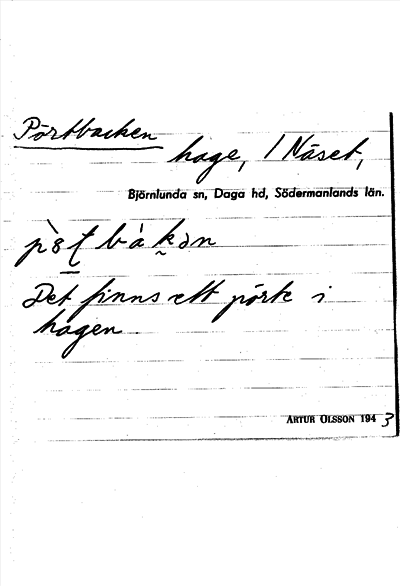 Pörtbacken
hage, 1 Näset,
Björnlunda sn, Daga hd, Södermanlands län.
Det finns ett pörte i
hagen.
ARTUR OLSSON 1943